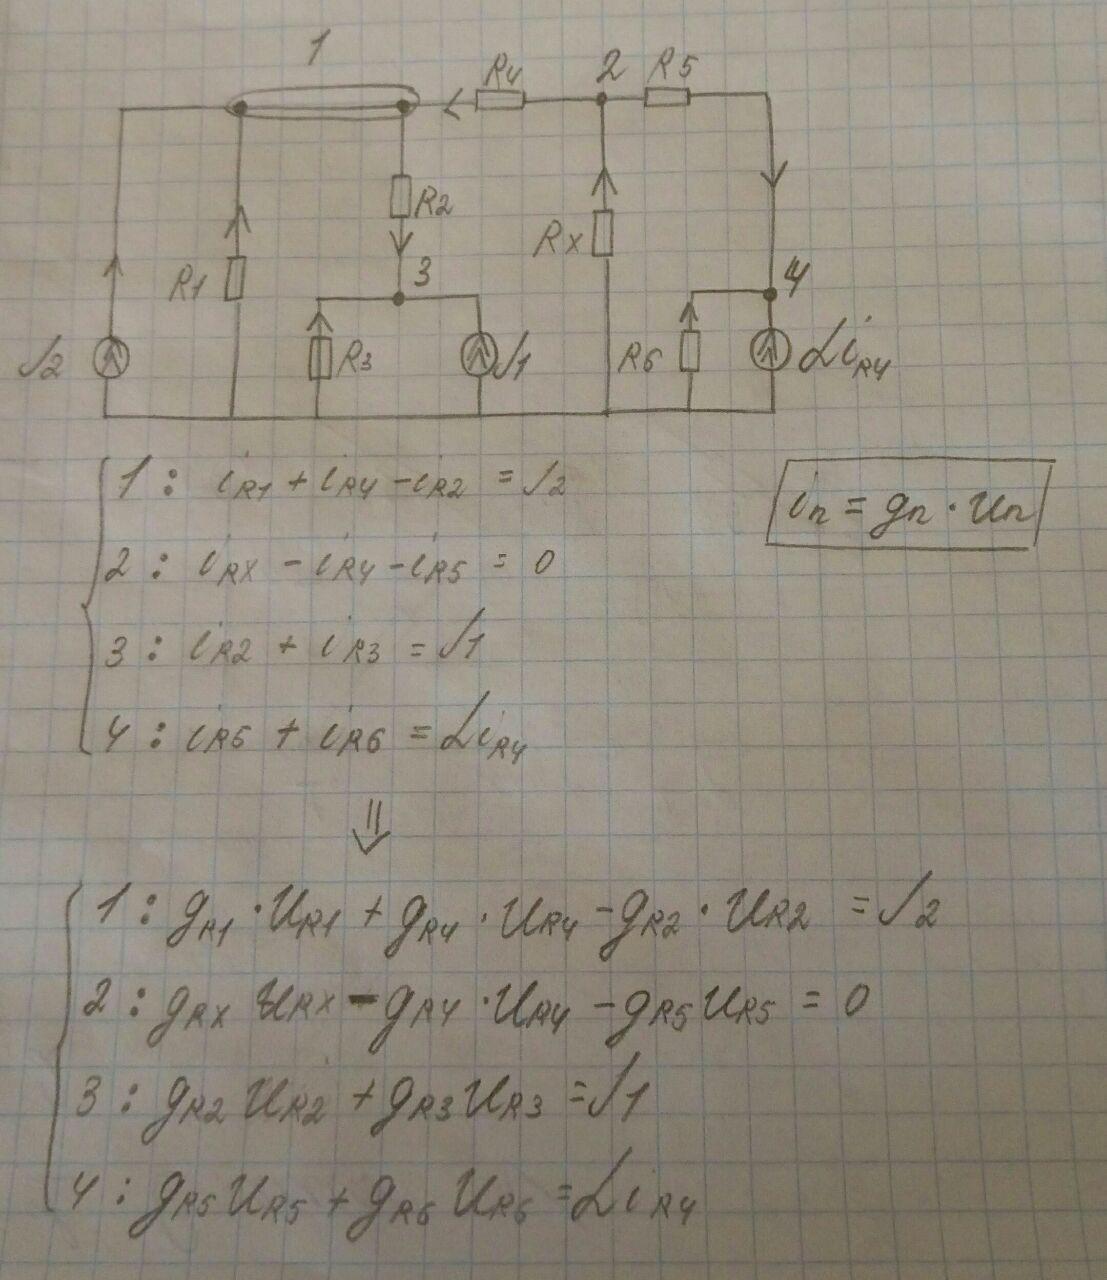 1
R4
2
R5
R2
Rx
R1
3
4
J2
R3
J1
R6
αi_R4
1 : i_R1 + i_R4 - i_R2 = J2
i_n = g_n · u_n
2 : i_RX - i_R4 - i_R5 = 0
3 : i_R2 + i_R3 = J1
4 : i_R5 + i_R6 = αi_R4
⇓
1 : g_R1 · u_R1 + g_R4 · u_R4 - g_R2 · u_R2 = J2
2 : g_RX u_RX - g_R4 · u_R4 - g_R5 u_R5 = 0
3 : g_R2 u_R2 + g_R3 u_R3 = J1
4 : g_R5 u_R5 + g_R6 u_R6 = αi_R4